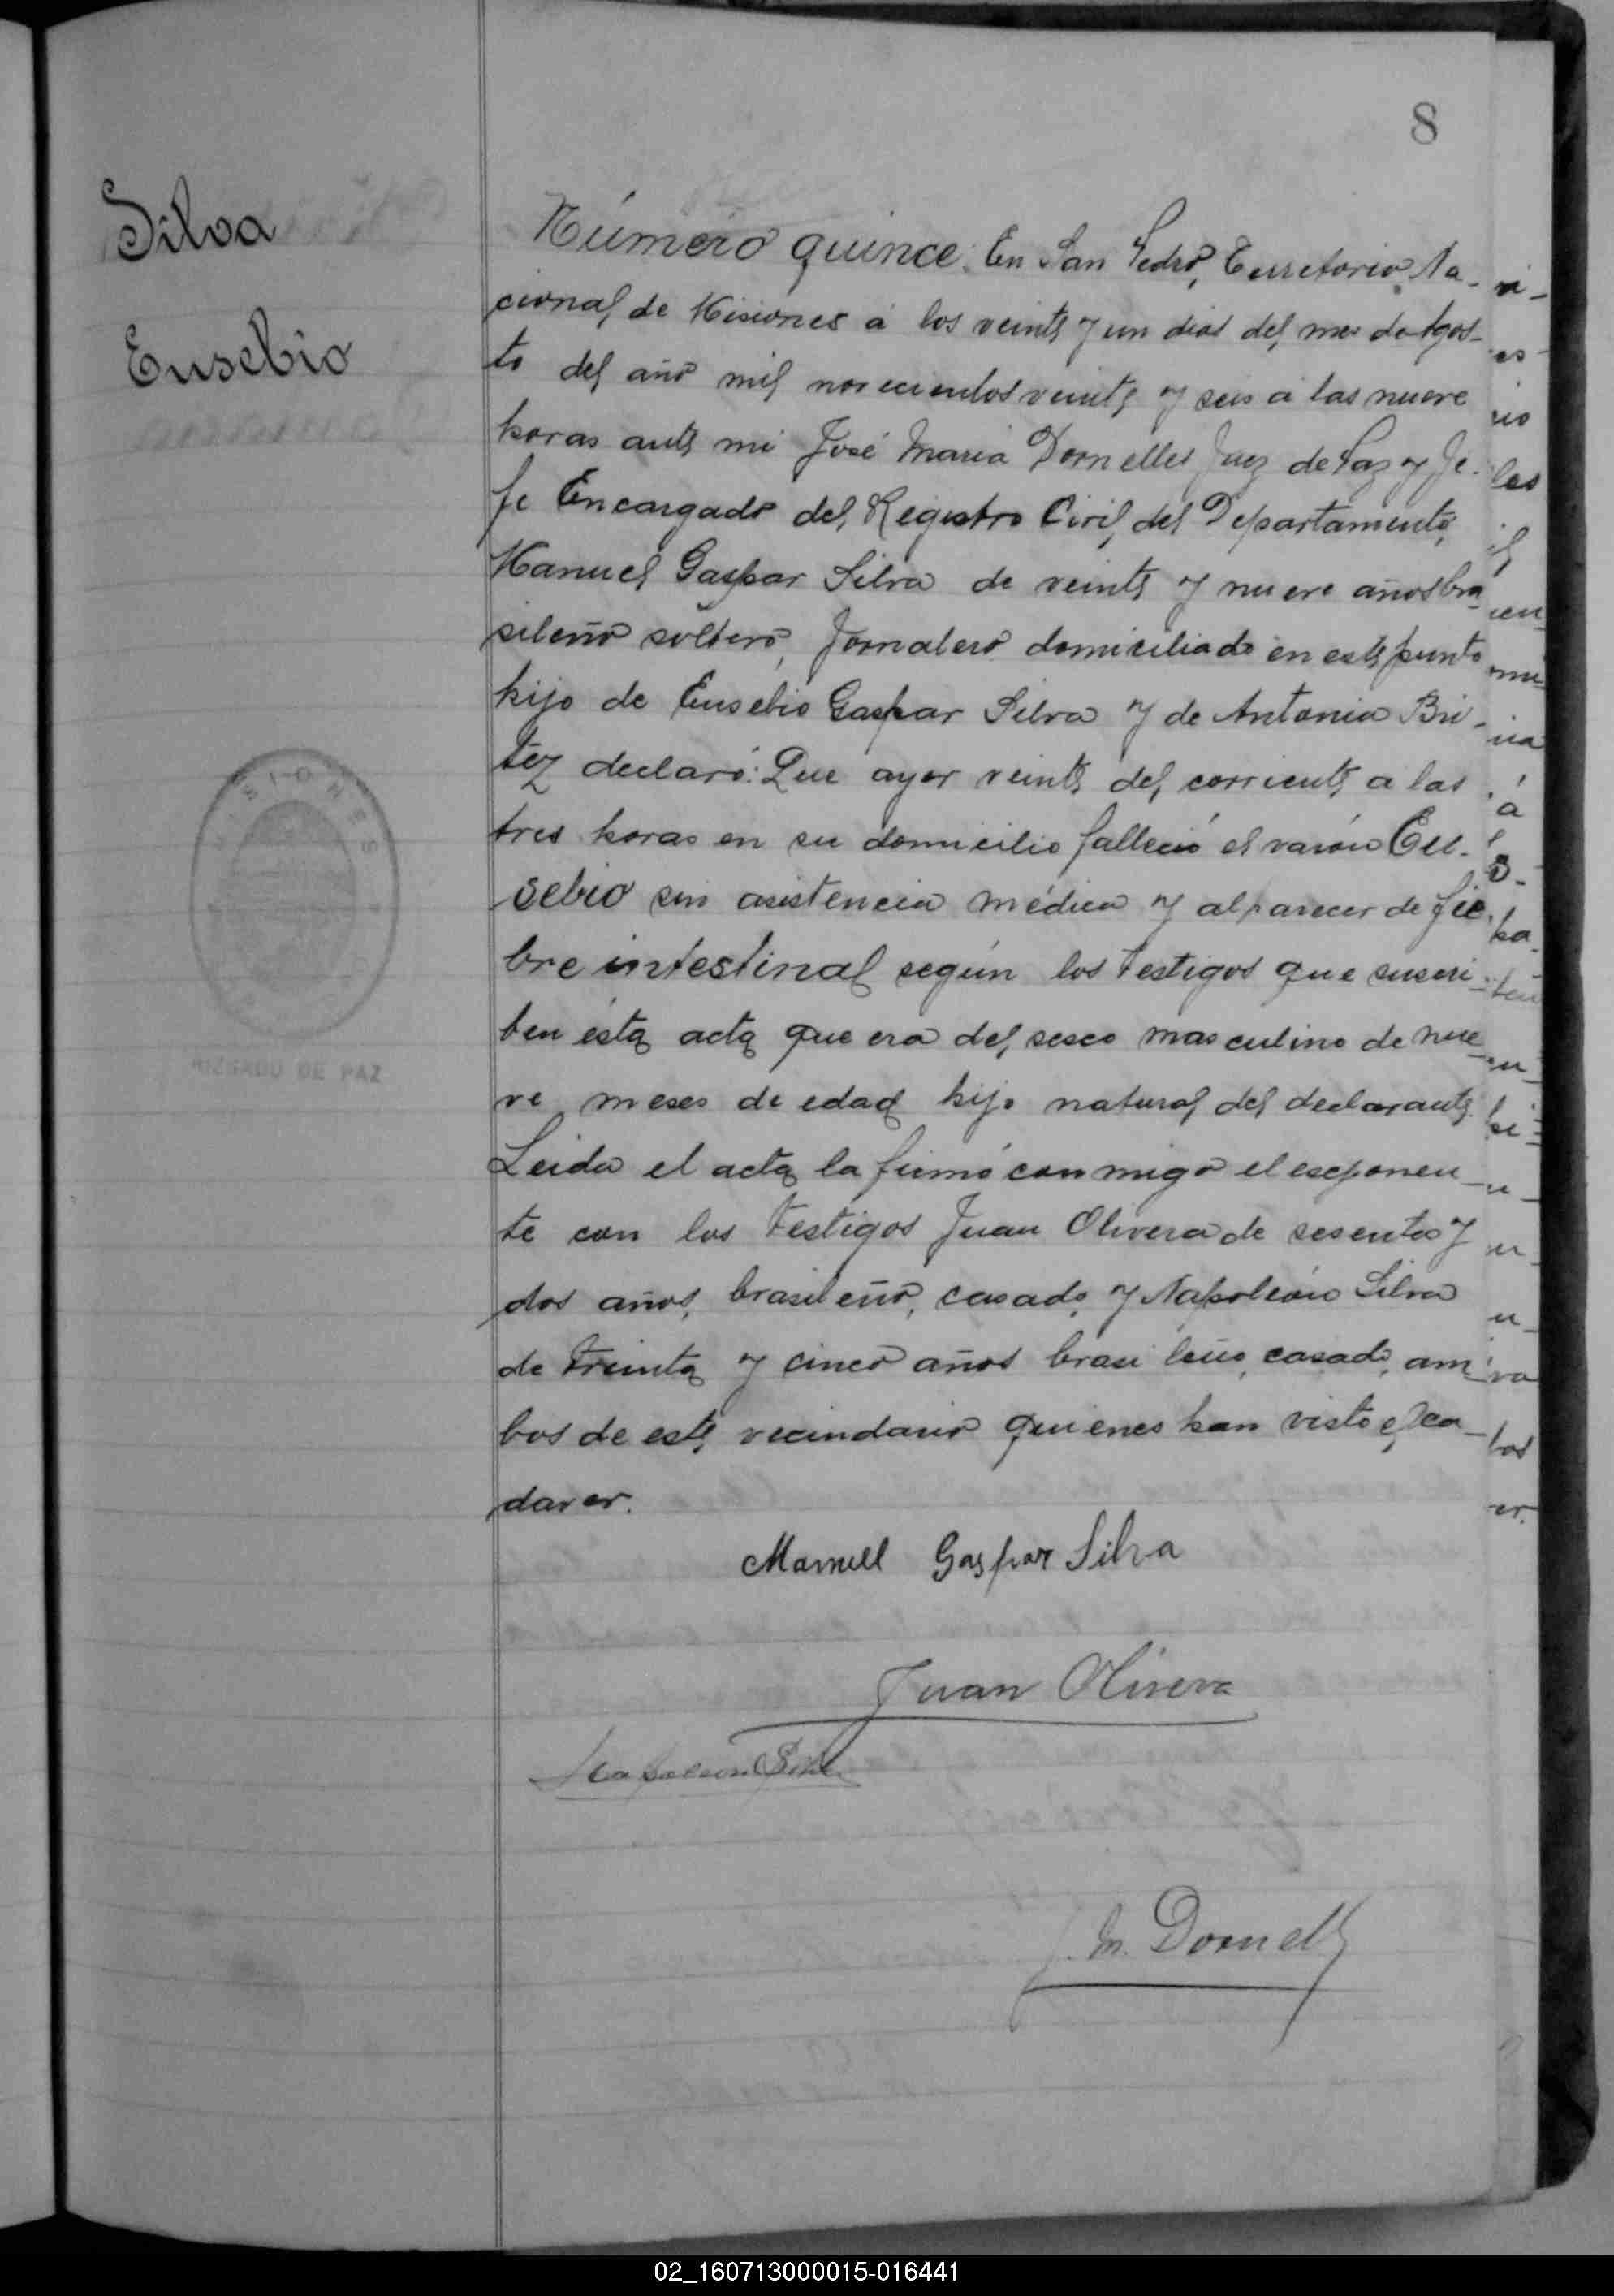 8
Silva
Eusebio
Número quince. En San Pedro, Territorio Na-
cional de Misiones á los veinte y un dias del mes de Agos-
to del año mil novecientos veinte y seis á las nueve
horas ante mi José Maria Dornelles Juez de Paz y Je-
fe Encargado del Registro Civil del Departamento,
Manuel Gaspar Silva de veinte y nueve años bra-
sileño soltero, Jornalero domiciliado en este punto
hijo de Eusebio Gaspar Silva y de Antonia Bri-
tez declaró: Que ayer veinte del corriente a las
tres horas en su domicilio falleció el varón Eu-
sebio sin asistencia médica y al parecer de fie-
bre intestinal según los testigos que suscri-
ben ésta acta que era del secso masculino de nue-
ve meses de edad hijo natural del declarante.
Leida el acta la firmó conmigo el esponen-
te con los testigos Juan Olivera de sesenta y
dos años, brasileño, casado, y Napoleón Silva
de treinta y cinco años brasileño, casado, am-
bos de este vecindario quienes han visto el ca-
daver.
Manuel Gaspar Silva
Juan Olivera
Napoleon Silva
J. M. Dornells
MISIONES
JUZGADO DE PAZ
02_160713000015-016441